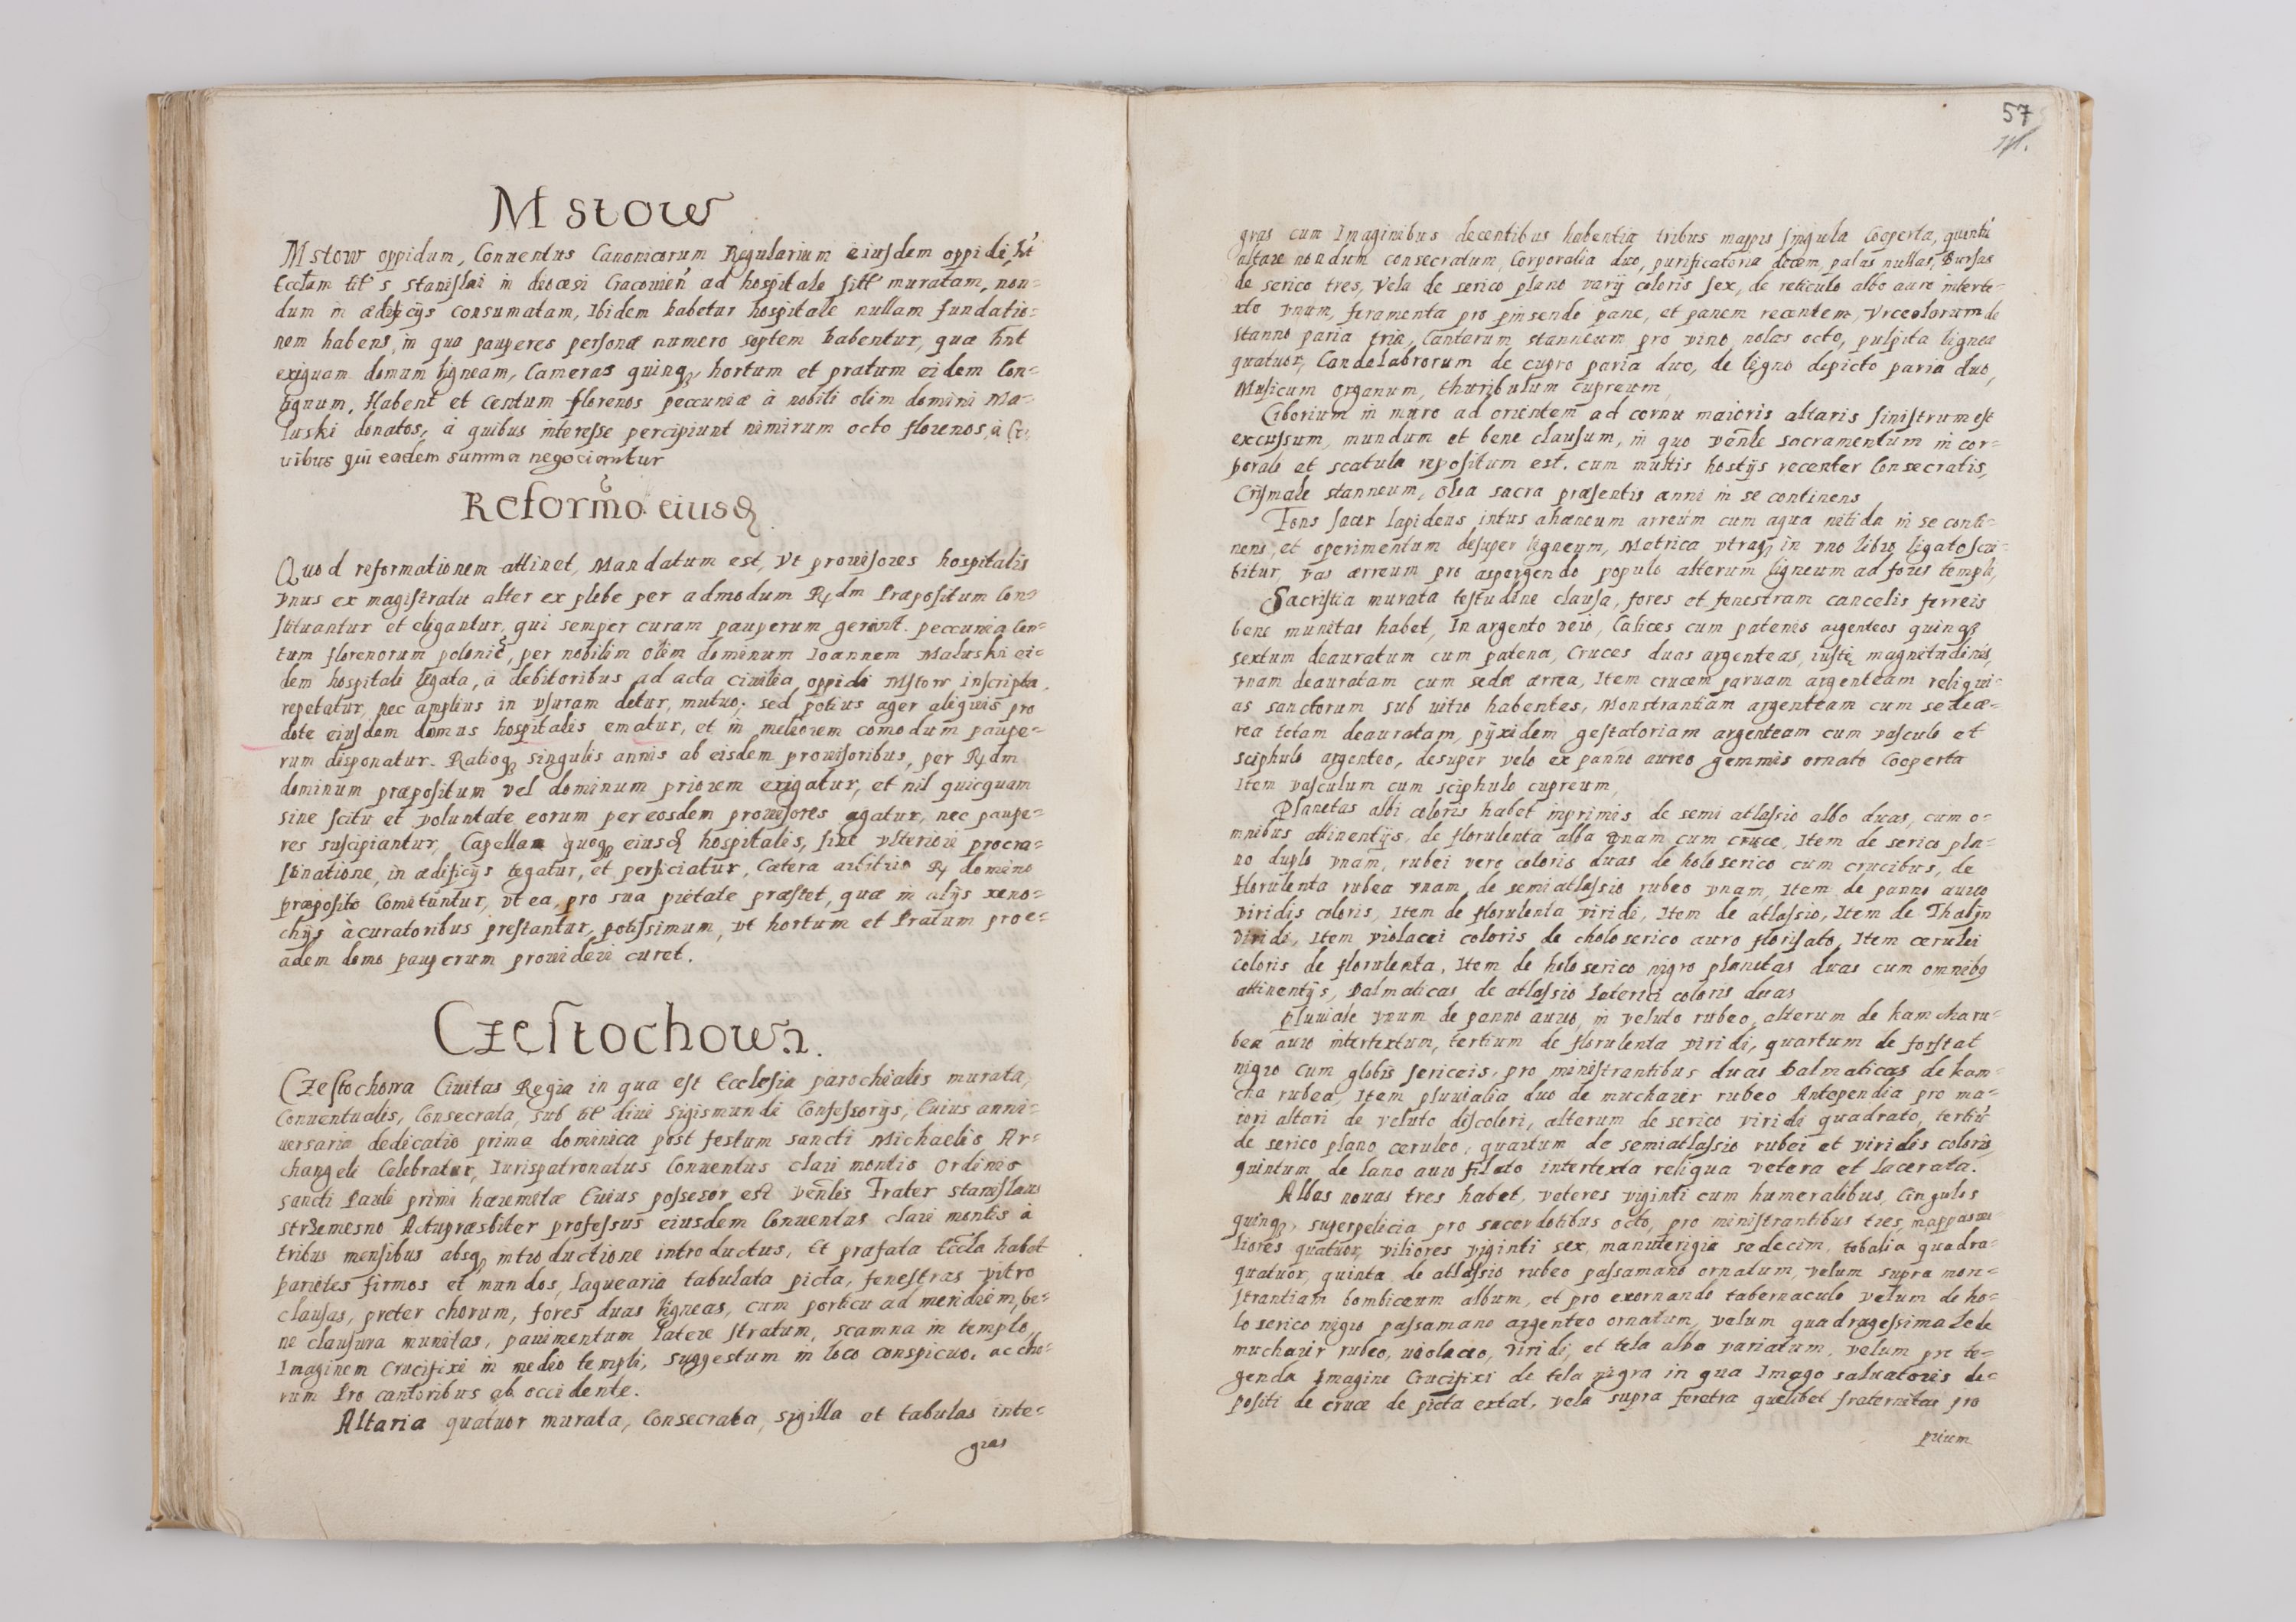 Mstow
Mstow oppidum, Conuentus Canonicorum Regularium eiusdem oppidi, ht
Ecclam tit s Stanislai in diocæsi Cracouien ad hospitale sitt muratam, non-
dum in ædificijs consumatam, Ibidem habetur hospitale nullam fundatio-
nem habens, in quo pauperes personæ numero septem habentur, quæ hnt
exiguam domum ligneam, Cameras quinqȝ hortum et pratum eidem Con-
tignum, Habent et Centum florenos peccuniæ à nobili olim domini Ma-
luski donatos, à quibus interesse percipiunt nimirum octo florenos, à Ci-
uibus qui eadem summa negociantur
Reformo eiusd
Quod reformationem attinet, Mandatum est, Vt prouisores hospitalis
Vnus ex magistratu alter ex plebe per admodum Rdm Præpositum Con-
stituantur et eligantur, qui semper curam pauperum gerant. peccunia Cen-
tum florenorum polonie, per nobilem olim dominum Ioannem Maluski ei-
dem hospitali legata, à debitoribus ad acta ciuilia oppidi Mstow inscripta,
repetatur, nec amplius in vsuram detur, mutuo, sed potius ager aliquis pro
dote eiusdem domus hospitalis ematur, et in meliorem comodum paupe-
rum disponatur. Ratioqȝ singulis annis ab eisdem prouisoribus, per Rdm
dominum præpositum vel dominum priorem exigatur, et nil quicquam
sine scitu et voluntate eorum per eosdem prouisores agatur, nec paupe-
res suscipiantur, Capella quoqȝ eiusd hospitalis, sine vlteriore procra-
stinatione, in ædificijs tegatur, et perficiatur, Cætera arbitrio R domino
præposito Comituntur, vt ea, pro sua pietate præstet, quæ in alijs xeno-
chijs à curatoribus prestantur, potissimum, vt hortum et Pratum pro e-
adem domo pauperum prouidere curet.
Czestochowa.
Czestochowa Ciuitas Regia in qua est Ecclesia parochialis murata,
Conuentualis, Consecrata, sub tit diui Sigismundi Confessoris, Cuius anni-
uersaria dedicatio prima dominica post festum sancti Michaelis Ar-
changeli Celebratur, Iurispatronatus Conuentus clari montis Ordinis
sancti Pauli primi hæremitæ Cuius possesor est Venlis Frater Stanislaus
Strzemesno Actupræsbiter professus eiusdem Conuentus clari montis à
tribus mensibus absqȝ introductione introductus, Et præfata Eccla habet
parietes firmos et mundos, laquearia tabulata picta, fenestras vitro
clausas, preter chorum, fores duas ligneas, cum porticu ad meridiem, be-
ne clausura munitas, pauimentum latere stratum, scamna in templo,
Imaginem Crucifixi in medio templi, suggestum in loco conspicuo, ac cho-
rum Pro cantoribus ab occidente.
Altaria quatuor murata, Consecrata, sigilla et tabulas inte-
gras
57
gras cum Imaginibus decentibus habentia tribus mappis singula Cooperta, quintu
altare nondum consecratum, Corporalia duo, purificatoria decem, palas nullas, Bursas
de serico tres, Vela de serico plano varij coloris sex, de reticulo albo auro interte-
xto vnum, feramenta pro pinsendo pane, et panem recentem, Vrceolorum de
stanno paria tria, Cantarum stanneum pro vino, nolas octo, pulpita lignea
quatuor, Candelabrorum de cupro paria duo, de ligno depicto paria duo,
Musicum Organum, thuribulum cupreum,
Ciborium in muro ad orientem ad cornu maioris altaris sinistrum est
excussum, mundum et bene clausum, in quo venle Sacramentum in cor-
porali et scatula repositum est, cum multis hostijs recenter Consecratis,
Crismale stanneum, Olea sacra præsentis anni in se continens
Fons sacer lapideus intus aheneum arreum cum aqua nitida in se conti-
nens, et operimentum desuper ligneum, Metrica vtraqȝ in vno libro ligato scri-
bitur, Vas ærreum pro aspergendo populo alterum ligneum ad fores templi,
Sacristia murata testudine clausa, fores et fenestram cancelis ferreis
bene munitas habet, In argento vero, Calices cum patenis argenteos quinqȝ
sextum deauratum cum patena, Cruces duas argenteas, iuste magnitudinis,
vnam deauratam cum sede ærea, Item crucem paruam argenteam reliqui-
as sanctorum sub uitro habentes, Monstrantiam argenteam cum sede æ-
rea totam deauratam, pyxidem gestatoriam argenteam cum vasculo et
sciphulo argenteo, desuper velo ex panno aureo gemmis ornato Cooperta
Item vasculum cum sciphulo cupreum,
Planetas albi coloris habet inprimis de semi atlassio albo duas, cum o-
mnibus attinentijs, de florulenta alba vnam cum cruce, Item de serico pla-
no duplo vnam, rubei vero coloris duas de holoserico cum crucibus, de
florulenta rubea vnam, de semiatlassio rubeo vnam, Item de panno aureo
viridis coloris, Item de florulenta viridi, Item de atlassio, Item de Thalijn
viridi, Item violacei coloris de choloserico auro florisato, Item cærulei
coloris de florulenta, Item de holoserico nigro planetas duas cum omnibȝ
attinentijs, Dalmaticas de atlassio Laterici coloris duas
Pluuiale vnum de panno aureo, in veluto rubeo, alterum de kamcha ru-
bea auro intertextum, tertium de florulenta viridi, quartum de forstat
nigro cum globis sericeis, pro ministrantibus duas Dalmaticas de kam-
cha rubea, Item pluuialia duo de mucha̅ier rubeo Antependia pro ma-
iori altari de veluto discolori, alterum de serico viridi quadrato, tertiu
de serico plano cæruleo, quartum de semiatlassio rubei et viridis coloris,
quintum de lano auro filato intertexta reliqua vetera et lacerata.
Albas nouas tres habet, veteres viginti cum humeralibus, Cingulos
quinqȝ, superpelicia pro sacerdotibus octo, pro ministrantibus tres, mappas me-
liores quatuor, viliores viginti sex, manuterigia sedecim, tobalia quadra-
quatuor, quinta de atlassio rubeo passamano ornatum, velum supra mon-
strantiam bombiceum album, et pro exornando tabernaculo velum de ho-
lo serico nigro passamano argenteo ornatum, velum quadragessimale de
muchaier rubeo, uiolaceo, viridi, et tela alba variatum, velum pro te-
genda Imagine Crucifixi de tela nigra in qua Imago saluatoris de-
positi de cruce de picta extat, vela supra feretra quælibet fraternitas pro
prium